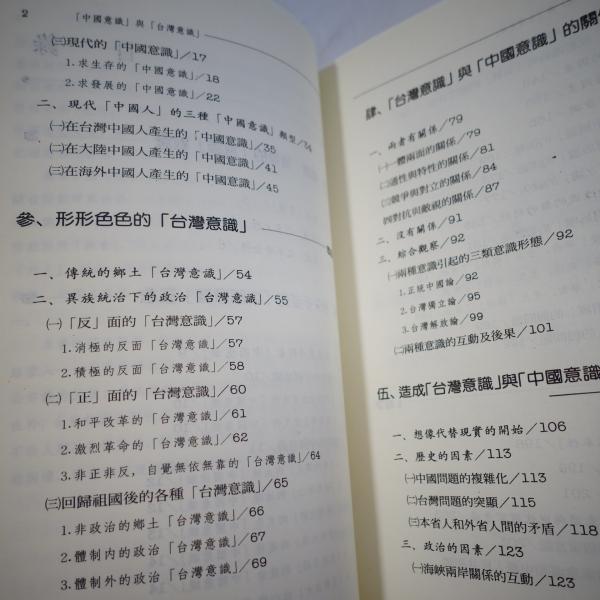 2
「中國意識」與「台灣意識」
㈢現代的「中國意識」/17
1.求生存的「中國意識」/18
2.求發展的「中國意識」/22
二、現代「中國人」的三種「中國意識」類型/34
㈠在台灣中國人產生的「中國意識」/35
㈡在大陸中國人產生的「中國意識」/41
㈢在海外中國人產生的「中國意識」/45
參、形形色色的「台灣意識」
一、傳統的鄉土「台灣意識」/54
二、異族統治下的政治「台灣意識」/55
㈠「反」面的「台灣意識」/57
1.消極的反面「台灣意識」/57
2.積極的反面「台灣意識」/58
㈡「正」面的「台灣意識」/60
1.和平改革的「台灣意識」/61
2.激烈革命的「台灣意識」/62
3.非正非反，自覺無依無靠的「台灣意識」/64
㈢回歸祖國後的各種「台灣意識」/65
1.非政治的鄉土「台灣意識」/66
2.體制內的政治「台灣意識」/67
3.體制外的政治「台灣意識」/69
肆、「台灣意識」與「中國意識」的關係
一、兩者有關係/79
㈠一體兩面的關係/79
㈡通性與特性的關係/81
㈢競爭與對立的關係/84
㈣對抗與敵視的關係/87
二、沒有關係/91
三、綜合觀察/92
㈠兩種意識引起的三類意識形態/92
1.正統中國論/92
2.台灣獨立論/95
3.台灣解放論/99
㈡兩種意識的互動及後果/101
伍、造成「台灣意識」與「中國意識
一、想像代替現實的開始/106
二、歷史的因素/113
㈠中國問題的複雜化/113
㈡台灣問題的突顯/115
㈢本省人和外省人間的矛盾/118
三、政治的因素/123
㈠海峽兩岸關係的互動/123